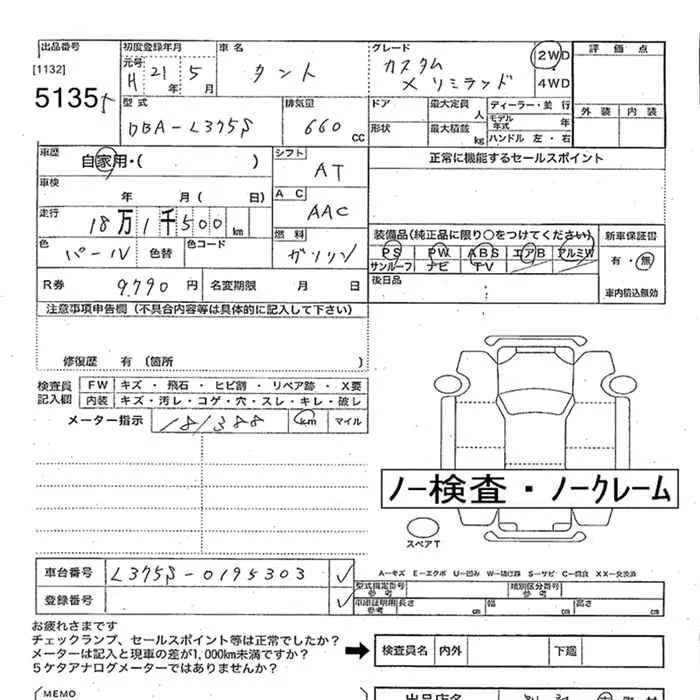 出品番号 初度登録年月 車名 グレード 2WD 評価点
[1132] 元号 H 21年 5月 タント カスタム 4WD
5135
型式 排気量 ドア 最大定員 人 ディーラー・並行 外装 内装
DBA-L375S 660cc 形状 最大積載 kg モデル年式 年
ハンドル 左・右
車歴 自家用・( ) シフト AT 正常に機能するセールスポイント
車検 年 月( 日) AC AAC
走行 18万1千500km
色 パール 色替 色コード 燃料 ガソリン
装備品(純正品に限り〇をつけてください) 新車保証書
PS PW ABS エアB アルミW 有・無
サンルーフ ナビ TV
R券 9,790円 名変期限 月 日 後日品 車内積込無効
注意事項申告欄(不具合内容等は具体的に記入して下さい)
修復歴 有(箇所 )
検査員記入欄 FW キズ・飛石・ヒビ割・リペア跡・X要
内装 キズ・汚レ・コゲ・穴・スレ・キレ・破レ
メーター指示 181388 km マイル
ノー検査・ノークレーム
スペアT
車台番号 L375S-0195303 ✓
A−キズ E−エクボ U−凹み S−サビ C−腐食 XX−交換済
型式指定番号 参考 類別区分番号 参考
登録番号 ✓ 車庫証明用参考 長さ cm 幅 cm 高さ cm
お疲れさまです
チェックランプ、セールスポイント等は正常でしたか?
メーターは記入と現車の差が1,000km未満ですか?
5ケタアナログメーターではありませんか?
➡ 検査員名 内外 下廻
MEMO
出品店名